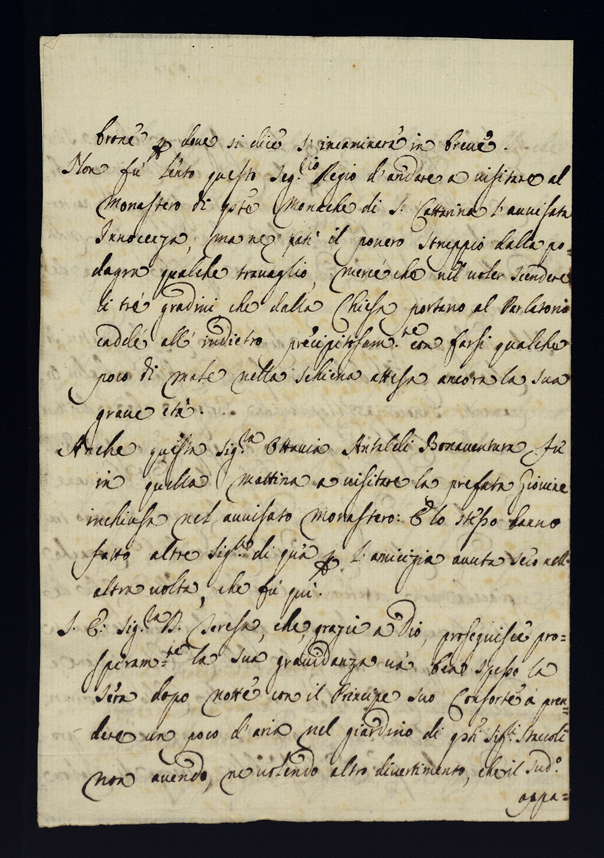 brone, p dove si dice s'incaminerà in breve.
Non fù lento questo Sig.r Regio d'andare a visitare al
Monastero di q.ste Monache di S. Catterina l'avvisata
Innocenza, ma ne patì il povero Stroppio dalla po=
dagra qualche travaglio, mercè che nell'voler scendere
li tré gradini che dalla Chiesa portano al Parlatorio
caddè all'indietro precipitosam.te con farsi qualche
poco di male nella schiena attesa ancora la sua
grave età.
Anche questa Sig.ra Ottavia Antaldi Bonaventura fù
in quella mattina a visitare la prefata Giovine
inchiusa nel avvisato Monastero: E lo stesso hanno
fatto altre Sig.re di quà p. l'amicizia avuta seco nell'
altra volta, che fù quì.
S. E: Sig.ra D. Teresa, che, grazie a Dio, proseguisce pro=
speram.te la sua gravidanza và ben spesso la
sera dopo notte con il Principe suo Consorte à pren=
dere un poco d'aria nel giardino di q.sti Sig.ri Staccoli
non avendo, ne volendo altro divertimento, che il sud.o
appa=